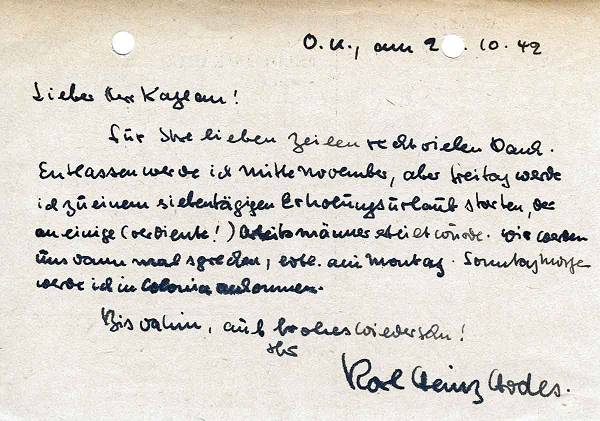 O.U., am 2 . 10. 42
Lieber Herr Kaplan!
Für Ihre lieben Zeilen recht vielen Dank.
Entlassen werde ich Mitte November, aber Freitag werde
ich zu einem siebentägigen Erholungsurlaub starten, der
an einige (verdiente!) Arbeitsmänner erteilt würde. Wir werden
uns dann mal sprechen, evtl. am Montag. Sonntag Morgen
werde ich in Colonia ankommen.
Bis dahin, auf frohes Wiedersehn!
Ihr
Karl Heinz Hodes.